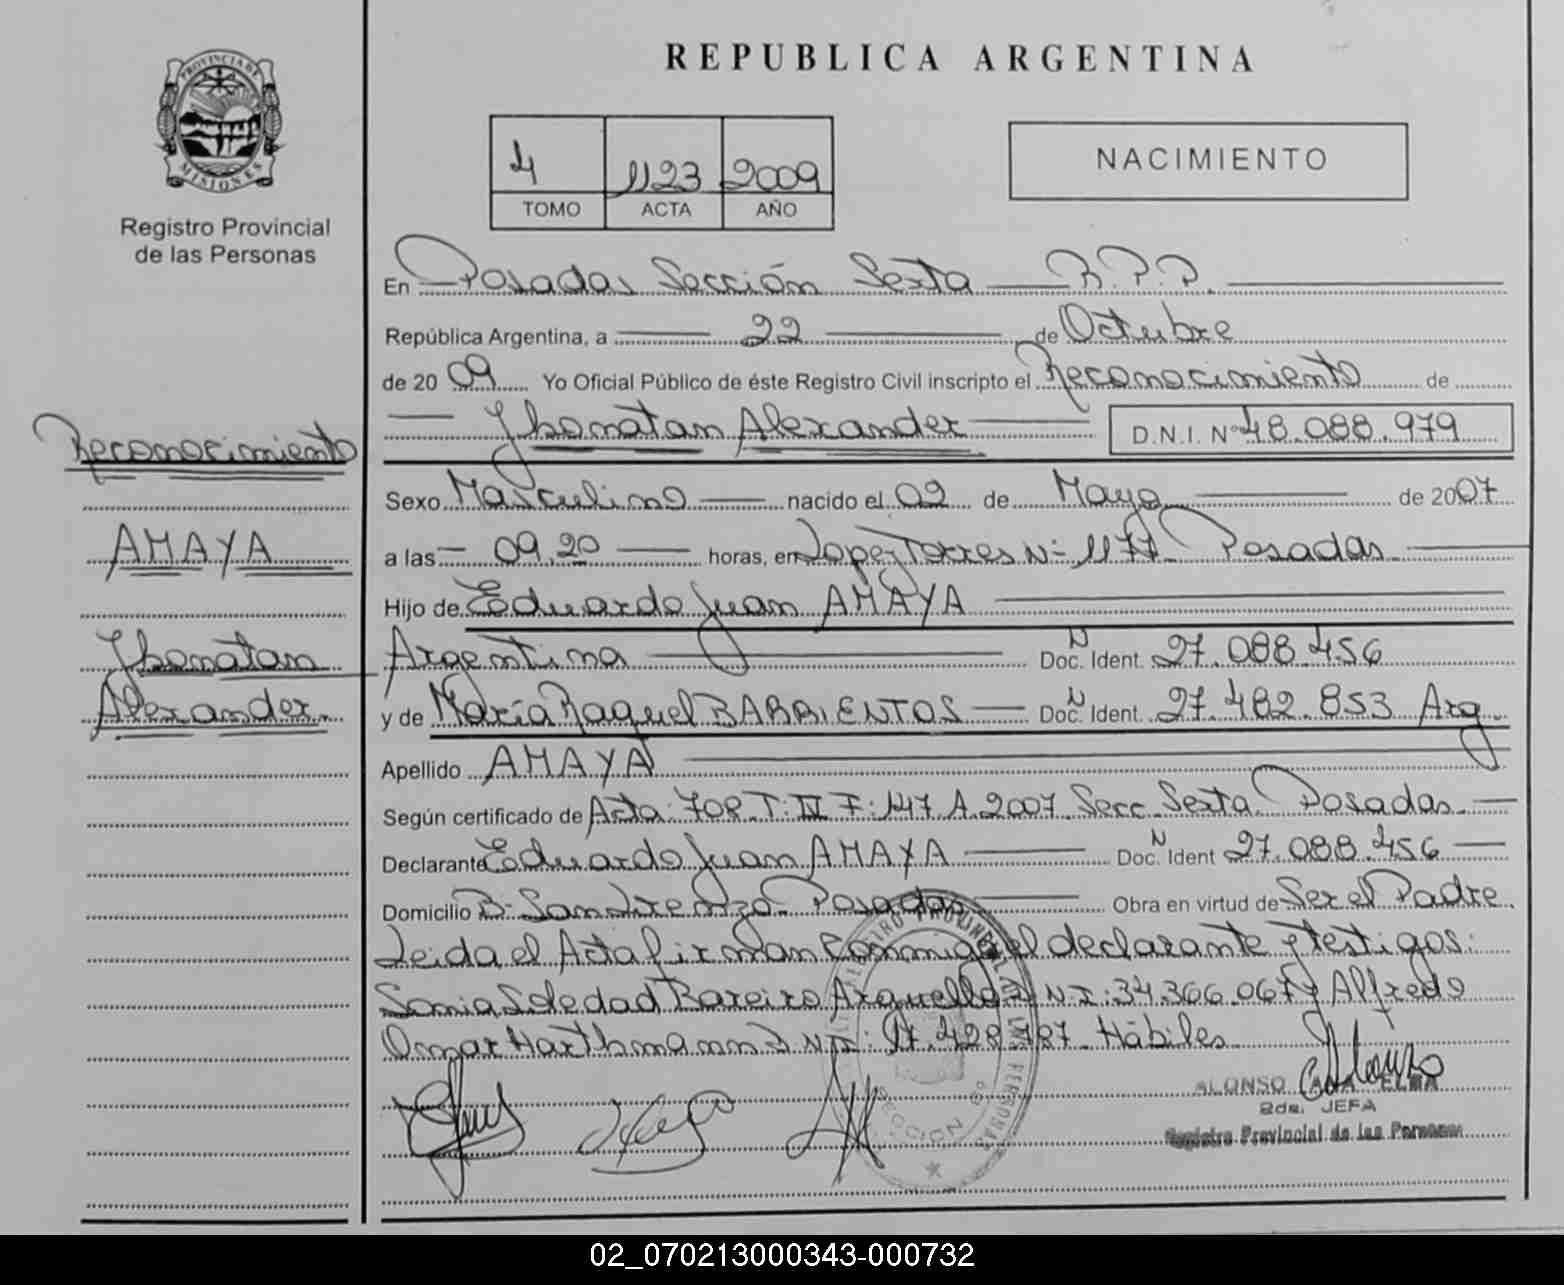 REPUBLICA ARGENTINA
PROVINCIA DE
MISIONES
Registro Provincial
de las Personas
4 1123 2009
TOMO ACTA AÑO
NACIMIENTO
En Posadas Sección Sexta R.P.P.
República Argentina, a 22 de Octubre
de 2009 Yo Oficial Público de éste Registro Civil inscripto el Reconocimiento de
Jhonatan Alexander D.N.I. Nº 48.088.979
Reconocimiento
AMAYA
Jhonatan
Alexander
Sexo Masculino nacido el 02 de Mayo de 2007
a las 09.20 horas, en Lopez Torres Nº 1177 Posadas
Hijo de Eduardo Juan AMAYA
Argentina Doc. N Ident. 27.088.456
y de María Raquel BARRIENTOS Doc. N Ident. 27.482.853 Arg
Apellido AMAYA
Según certificado de Acta: 708 T: IV F: 147 A. 2007 Secc Sexta Posadas
Declarante Eduardo Juan AMAYA Doc. N Ident 27.088.456
Domicilio Bº San Lorenzo Posadas Obra en virtud de Ser el Padre
Leida el Acta firman Conmigo el declarante y testigos:
Sonia Soledad Bareiro Arguello D.N.I: 34.366.067 y Alfredo
Omar Harthmann D.N.I: 17.428.787 Hábiles
ALONSO ANA ELMA
2da. JEFA
Registro Provincial de las Personas
SECCION 6º
02_070213000343-000732